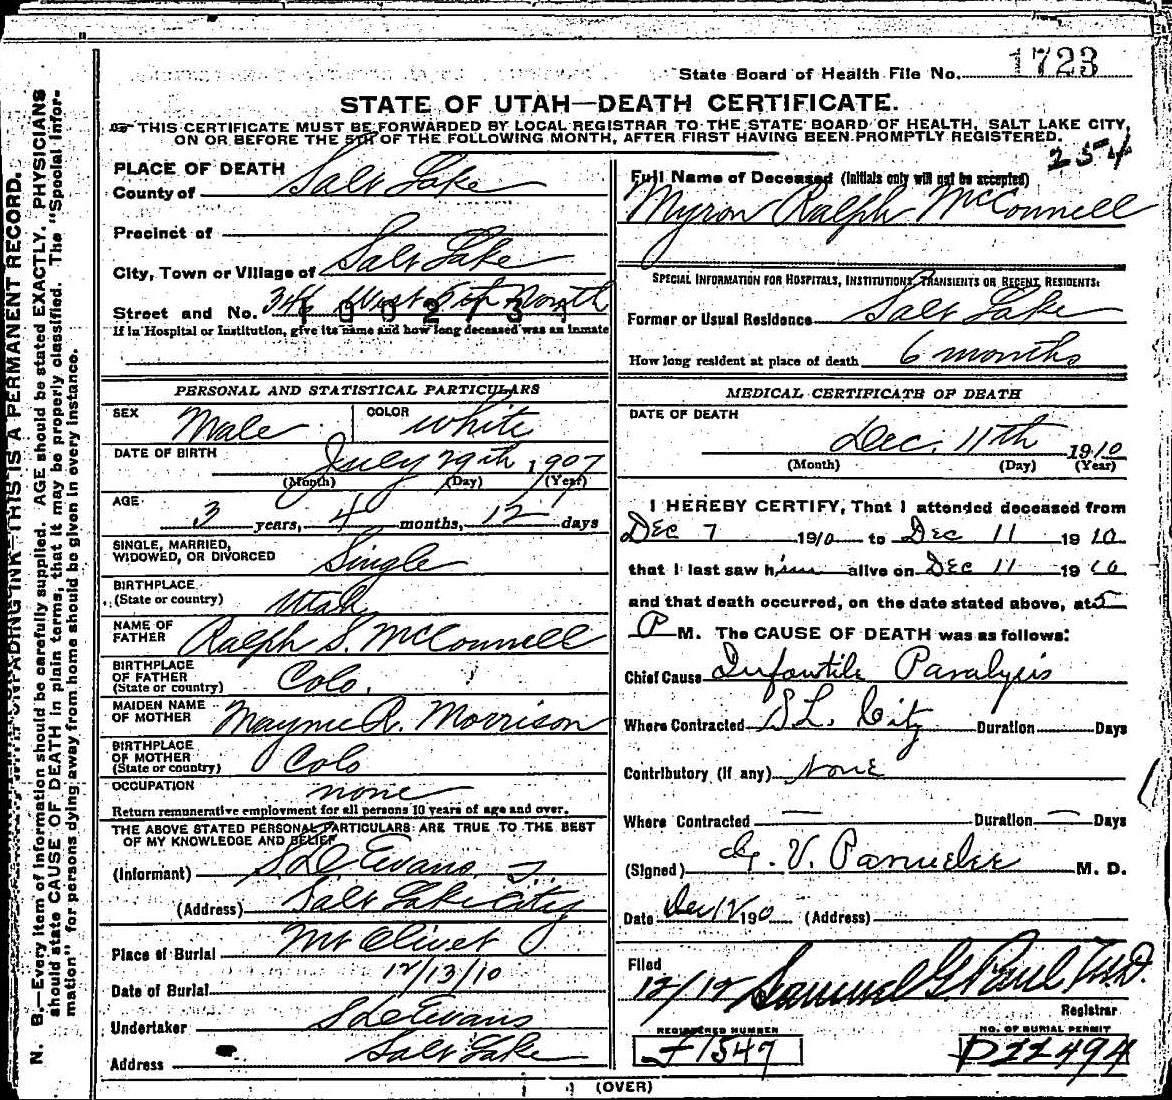 State Board of Health File No. 1723
STATE OF UTAH—DEATH CERTIFICATE.
☞ THIS CERTIFICATE MUST BE FORWARDED BY LOCAL REGISTRAR TO THE STATE BOARD OF HEALTH, SALT LAKE CITY,
ON OR BEFORE THE 5TH OF THE FOLLOWING MONTH, AFTER FIRST HAVING BEEN PROMPTLY REGISTERED.
254
PLACE OF DEATH
County of Salt Lake
Precinct of
City, Town or Village of Salt Lake
Street and No. West 5th North
If in Hospital or Institution, give its name and how long deceased was an inmate
PERSONAL AND STATISTICAL PARTICULARS
SEX Male COLOR White
DATE OF BIRTH July 29th, 1907
(Month) (Day) (Year)
AGE 3 years, 4 months, 12 days
SINGLE, MARRIED,
WIDOWED, OR DIVORCED Single
BIRTHPLACE
(State or country) Utah
NAME OF
FATHER Ralph S. McConnell
BIRTHPLACE
OF FATHER
(State or country) Colo.
MAIDEN NAME
OF MOTHER Mayme R. Morrison
BIRTHPLACE
OF MOTHER
(State or country) Colo
OCCUPATION none
Return remunerative employment for all persons 10 years of age and over.
THE ABOVE STATED PERSONAL PARTICULARS ARE TRUE TO THE BEST
OF MY KNOWLEDGE AND BELIEF
(Informant) Evans
(Address) Salt Lake City
Place of Burial Mt Olivet
Date of Burial 12/13/10
Undertaker Evans
Address Salt Lake
Full Name of Deceased (Initials only will not be accepted)
Myron Ralph McConnell
SPECIAL INFORMATION FOR HOSPITALS, INSTITUTIONS, TRANSIENTS OR RECENT RESIDENTS:
Former or Usual Residence Salt Lake
How long resident at place of death 6 months
MEDICAL CERTIFICATE OF DEATH
DATE OF DEATH
Dec. 11th 1910
(Month) (Day) (Year)
I HEREBY CERTIFY, That I attended deceased from
Dec 7 1910 to Dec 11 1910
that I last saw him alive on Dec 11 1910
and that death occurred, on the date stated above, at 5
P M. The CAUSE OF DEATH was as follows:
Chief Cause Infantile Paralysis
Where Contracted S L. City Duration Days
Contributory (if any) None
Where Contracted — Duration — Days
(Signed) M. D.
Date Dec 12 190 (Address)
Filed
12/12 Samuel G. Paul M.D.
Registrar
REGISTERED NUMBER
1547
NO. OF BURIAL PERMIT
(OVER)
N. B.—Every item of information should be carefully supplied. AGE should be stated EXACTLY. PHYSICIANS
should state CAUSE OF DEATH in plain terms, that it may be properly classified. The "Special Infor-
mation" for persons dying away from home should be given in every instance.
UNFADING INK—THIS IS A PERMANENT RECORD.